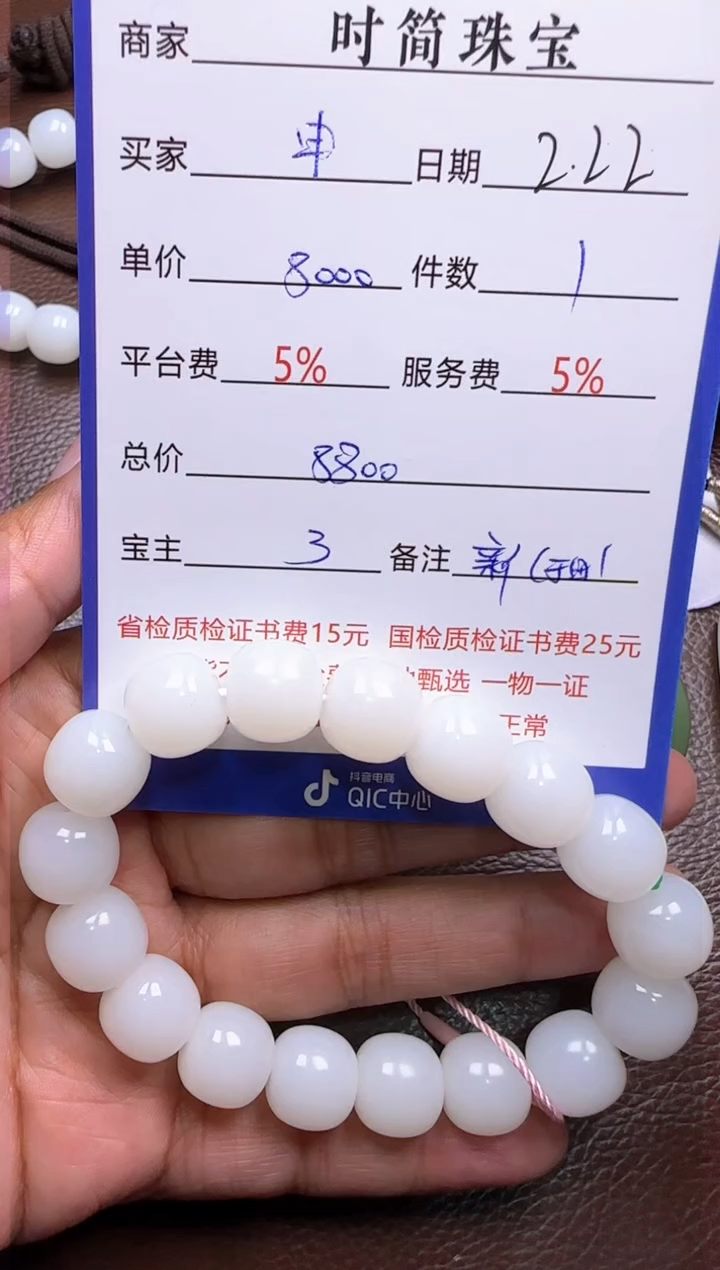 商家 时简珠宝
买家 申 日期 2.22
单价 8000 件数 1
平台费 5% 服务费 5%
总价 8800
宝主 3 备注 新
省检质检证书费15元 国检质检证书费25元
甄选 一物一证
正常
抖音电商
QIC中心